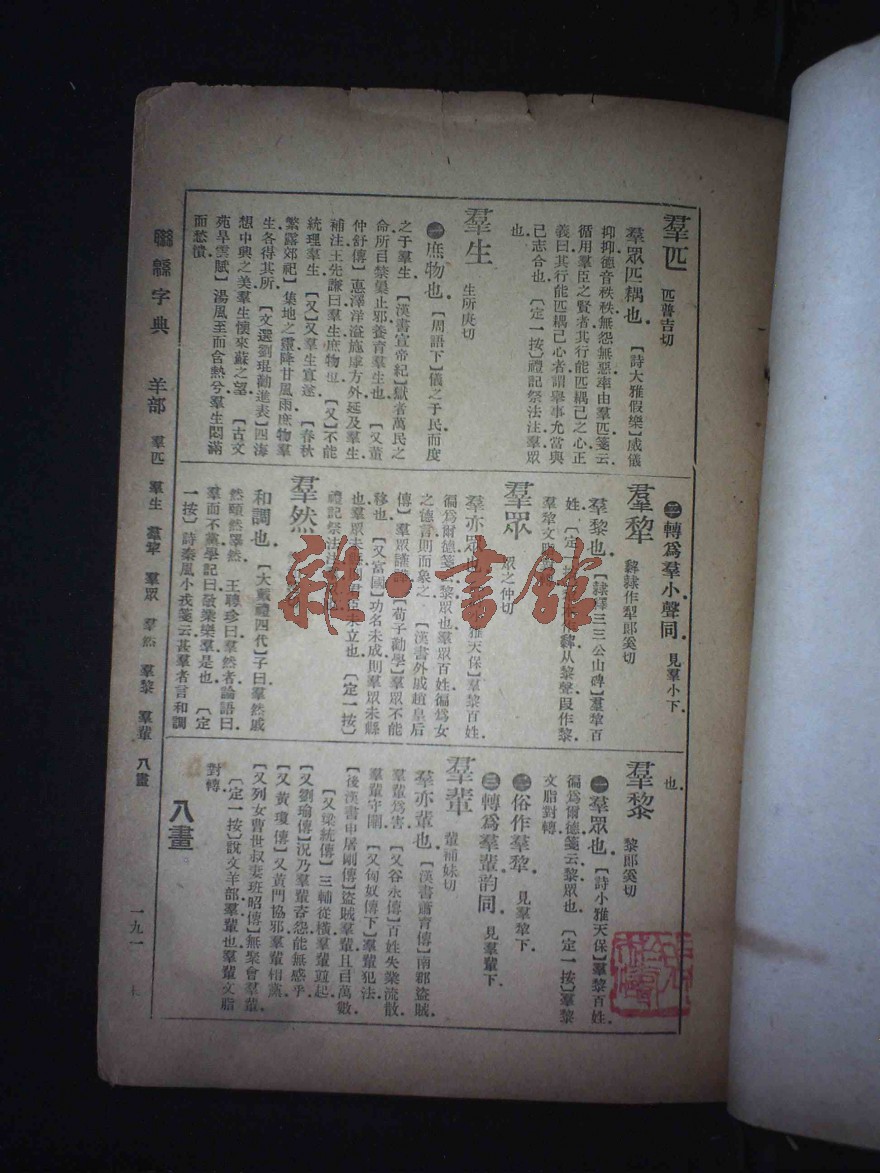 羣匹　匹普吉切
羣眾匹耦也．［詩大雅假樂］威儀
抑抑德音秩秩無怨無惡率由羣匹箋云
循用羣臣之賢者其行能匹耦己之心正
義曰其行能匹耦己心者謂舉事允當與
己志合也．［定一按］禮記祭法注羣眾
也．
羣生　生所庚切
㊀庶物也．［周語下］儀之于民而度
之于羣生．［漢書宣帝紀］獄者萬民之
命所目禁暴止邪養育羣生也．［又董
仲舒傳］惠澤洋溢施虖方外延及羣生
補注王先謙曰羣生庶物也．［又］不能
統理羣生．［又］又羣生寡遂．［春秋
繁露郊祀］集地之靈降甘風雨庶物羣
生各得其所．［文選劉琨勸進表］四海
想中興之美羣生懷來蘇之望．［古文
苑旱雲賦］湯風至而含熱兮羣生悶滿
而愁憒．
㊁轉爲羣小聲同．見羣小下．
羣犂　隸作犁郎奚切
羣黎也．［隸釋三三公山碑］羣犂百
姓．［定
羣眾　眾之仲切
羣亦眾也．雅天保］羣黎百姓
徧爲爾德箋黎眾也羣眾百姓徧爲女
之德言則而象之．［漢書外戚趙皇后
傳］羣眾讙譁．［荀子勸學］羣眾不能
移也．［又富國］功名未成則羣眾未縣
也羣眾未立也．［定一按］
禮記祭法
羣然
和調也．［大戴禮四代］子曰羣然戚
然頤然睪然．王聘珍曰羣然者論語曰
羣而不黨學記曰敬業樂羣是也．［定
一按］詩秦風小戎箋云甚羣者言和調
也．
羣黎　黎郎奚切
㊀羣眾也．［詩小雅天保］羣黎百姓
徧爲爾德箋云黎眾也．［定一按］羣黎
文脂對轉．
㊁俗作羣犂．見羣犂下．
㊂轉爲羣輩韵同．見羣輩下．
羣輩　輩補妹切
羣亦輩也．［漢書蕭育傳］南郡盜賊
羣輩爲害．［又谷永傳］百姓失業流散
羣輩守關．［又匈奴傳下］羣輩犯法．
［後漢書申屠剛傳］盜賊羣輩且目萬數
．［又梁統傳］三輔從橫羣輩並起．
［又劉瑜傳］況乃羣輩咨怨能無感乎．
［又黃瓊傳］又黃門協邪羣輩相黨．
［又列女曹世叔妻班昭傳］無聚會羣輩
．［定一按］說文羊部羣輩也羣輩文脂
對轉．
八畫
聯緜字典　羊部　羣匹　羣生　羣犂　羣眾　羣然　羣黎　羣輩　八畫　一九一
雜·書館